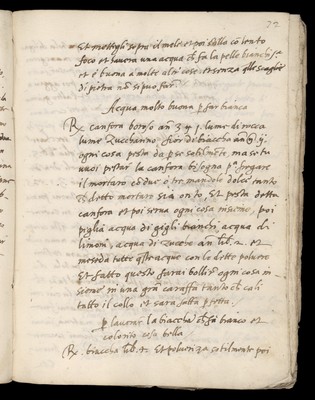 22
Et mettegli sopra il mele et poi stillo cõ lento
foco et havera una acqua ch̃ fa la pelle bianchiss.ª
et è buona a molte altre cose, et senza
di pietra nõ si puo far.
Acqua molto buona p far bianco
Rx canfora boraso an ʒ lume di rocca
lume Zuccharino, fior di biaccha an
ogni cosa pesta da p se sotilmẽte ma se tu
vuoi pistar la canfora bisogna p.ª fregare
il mortaro cõ due o tre mandole dolci tanto
detto mortaro sia onto, Et pesta detta
canfora et poi serva ogni cosa insieme, poi
piglia acqua di gigli bianchi, acqua di
limoni, acqua di Zucche an lib. 2. et
meseda tutte q̃ste acque con le dette polvere
Et fatto questo farai bollir ogni cosa in
sieme in una grã caraffa tanto ch̃ cali
tutto il collo et sara fatta p̃fetta.
p lavorar la biaccha ch̃ fa bianco et
colorito cosa bella
Rx. biaccha lib. et polveriza sotilmente poi